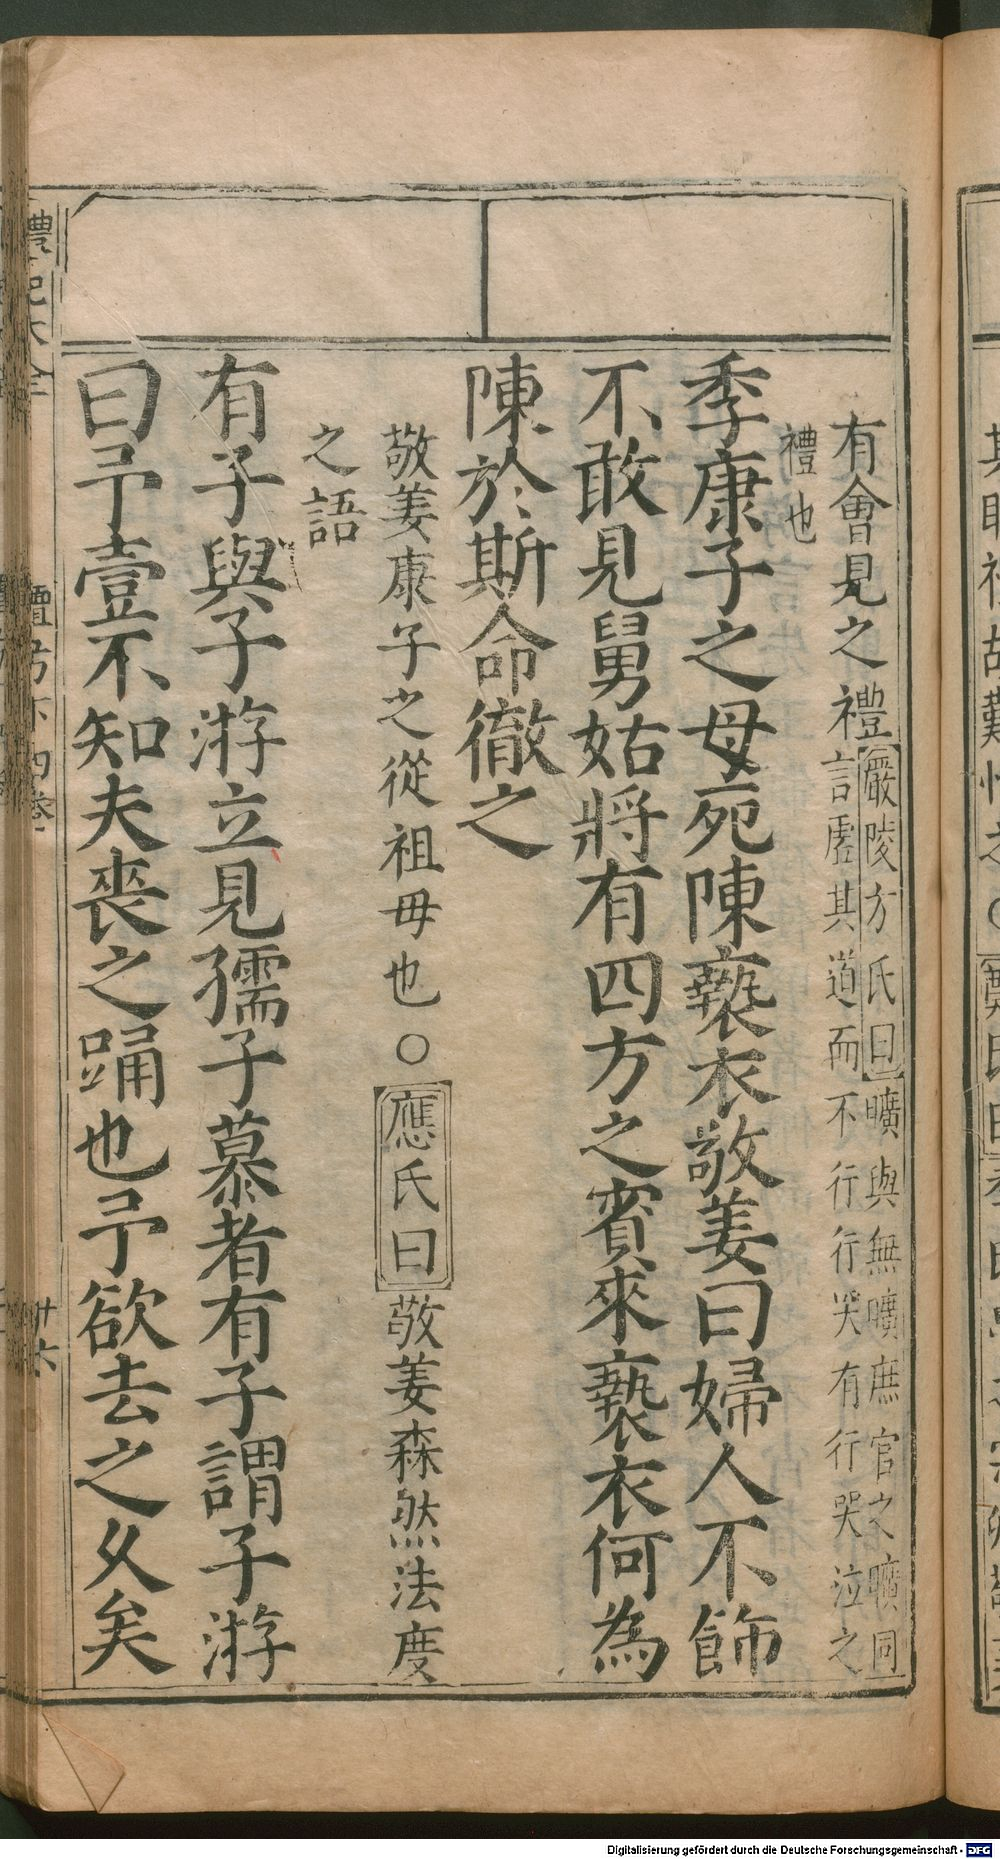 有會見之禮嚴陵方氏曰曠與無曠庶官之曠同
言虛其道而不行行哭有行哭泣之
禮也
季康子之母死陳褻衣敬姜曰婦人不飾
不敢見舅姑將有四方之賓來褻衣何為
陳於斯命徹之
敬姜康子之從祖母也○應氏曰敬姜森然法度
之語
有子與子游立見孺子慕者有子謂子游
曰予壹不知夫喪之踊也予欲去之久矣
禮記大全
檀弓下四卷
廿六
Digitalisierung gefördert durch die Deutsche Forschungsgemeinschaft - DFG